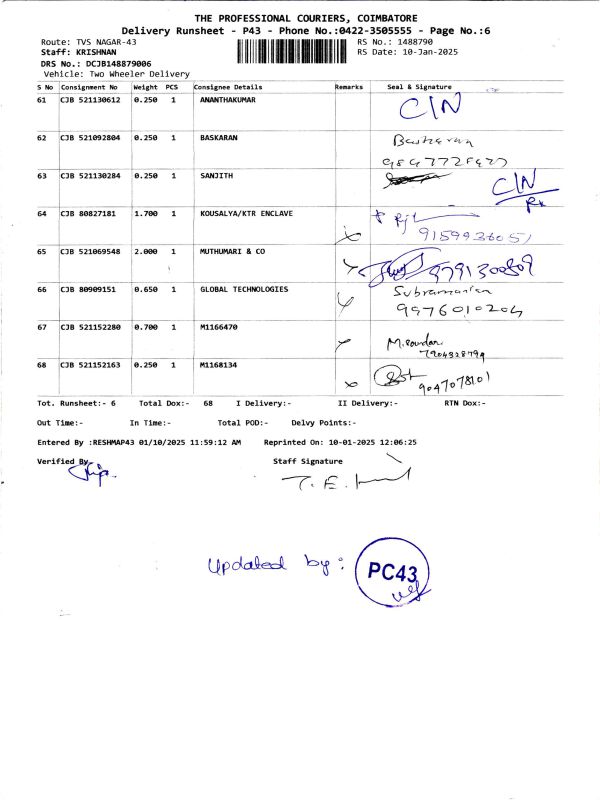 THE PROFESSIONAL COURIERS, COIMBATORE
Delivery Runsheet - P43 - Phone No.:0422-3505555 - Page No.:6
Route: TVS NAGAR-43 RS No.: 1488790
Staff: KRISHNAN RS Date: 10-Jan-2025
DRS No.: DCJB148879006
Vehicle: Two Wheeler Delivery
S No Consignment No Weight PCS Consignee Details Remarks Seal & Signature
61 CJB 521130612 0.250 1 ANANTHAKUMAR C/N
62 CJB 521092804 0.250 1 BASKARAN Baskaran
63 CJB 521130284 0.250 1 SANJITH C/N
64 CJB 80827181 1.700 1 KOUSALYA/KTR ENCLAVE
9159936051
65 CJB 521069548 2.000 1 MUTHUMARI & CO 9791300809
66 CJB 80909151 0.650 1 GLOBAL TECHNOLOGIES Subramanian
9976010204
67 CJB 521152280 0.700 1 M1166470
7904328799
68 CJB 521152163 0.250 1 M1168134 9047078101
Tot. Runsheet:- 6 Total Dox:- 68 I Delivery:- II Delivery:- RTN Dox:-
Out Time:- In Time:- Total POD:- Delvy Points:-
Entered By :RESHMAP43 01/10/2025 11:59:12 AM Reprinted On: 10-01-2025 12:06:25
Verified By Staff Signature
Updated by: PC43